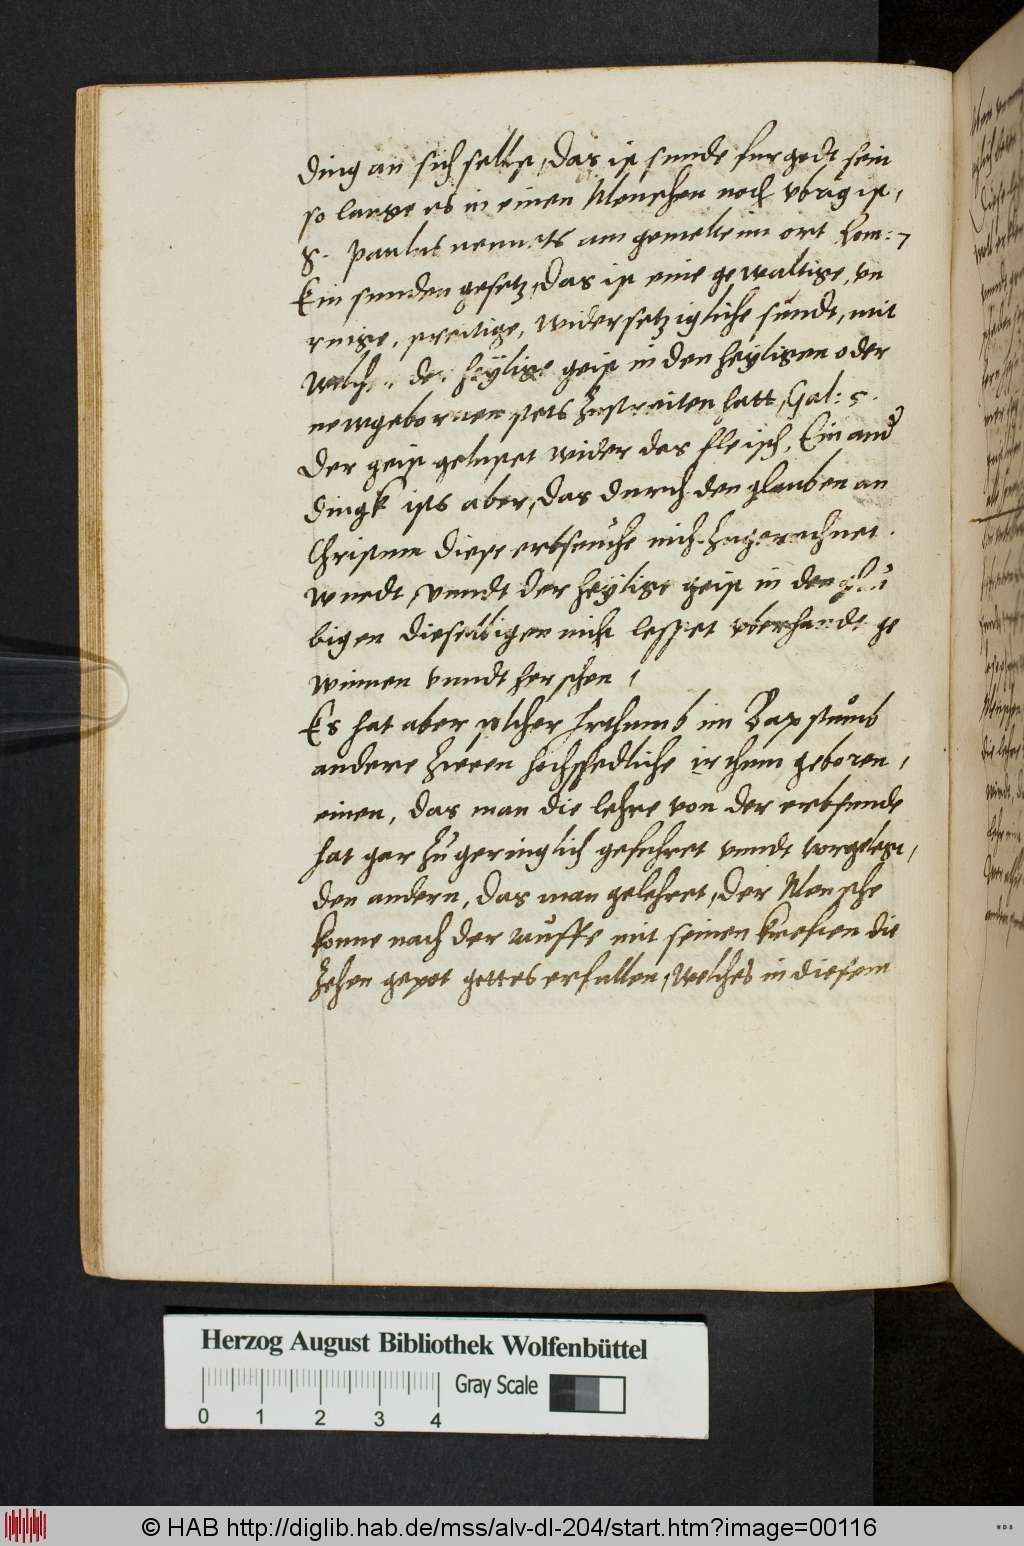 ding an sich selbst, das ist sunde fur gedt sein
so lange es in einen Menschen noch vbrig ist,
S. Paulus nennets am gemelten ort Rom: 7
Ein sunden gesetz, das ist eine gewaltige, vn
ruige, streitige, widersetzigliche sundt, mit
der heylige geist in den heyligen oder
newgebornen stets zustreiten hatt, Gal: 5.
Der geist gelustet wider das fleisch, Ein and
dingk ists aber, das durch den glauben an
Christum diese erbseuche nicht zugerechnet
wurdt, vnndt der heylige geist in den glau
bigen dieselbigen nicht lesset vberhandt ge
winnen vnndt herschen,
Es hat aber solcher Irthumb im Bapstumb
andere zween hochschedliche irthum geboren,
einen, das man die lehre von der erbsunde
hat gar zu geringlich gefuhret vnndt vorgelegt,
den andern, das man gelehret, der Mensche
konne nach der tauffe mit seinen kreften die
zehen gepot gottes erfullen, welches in diesem
Herzog August Bibliothek Wolfenbüttel
0 1 2 3 4 Gray Scale
© HAB http://diglib.hab.de/mss/alv-dl-204/start.htm?image=00116